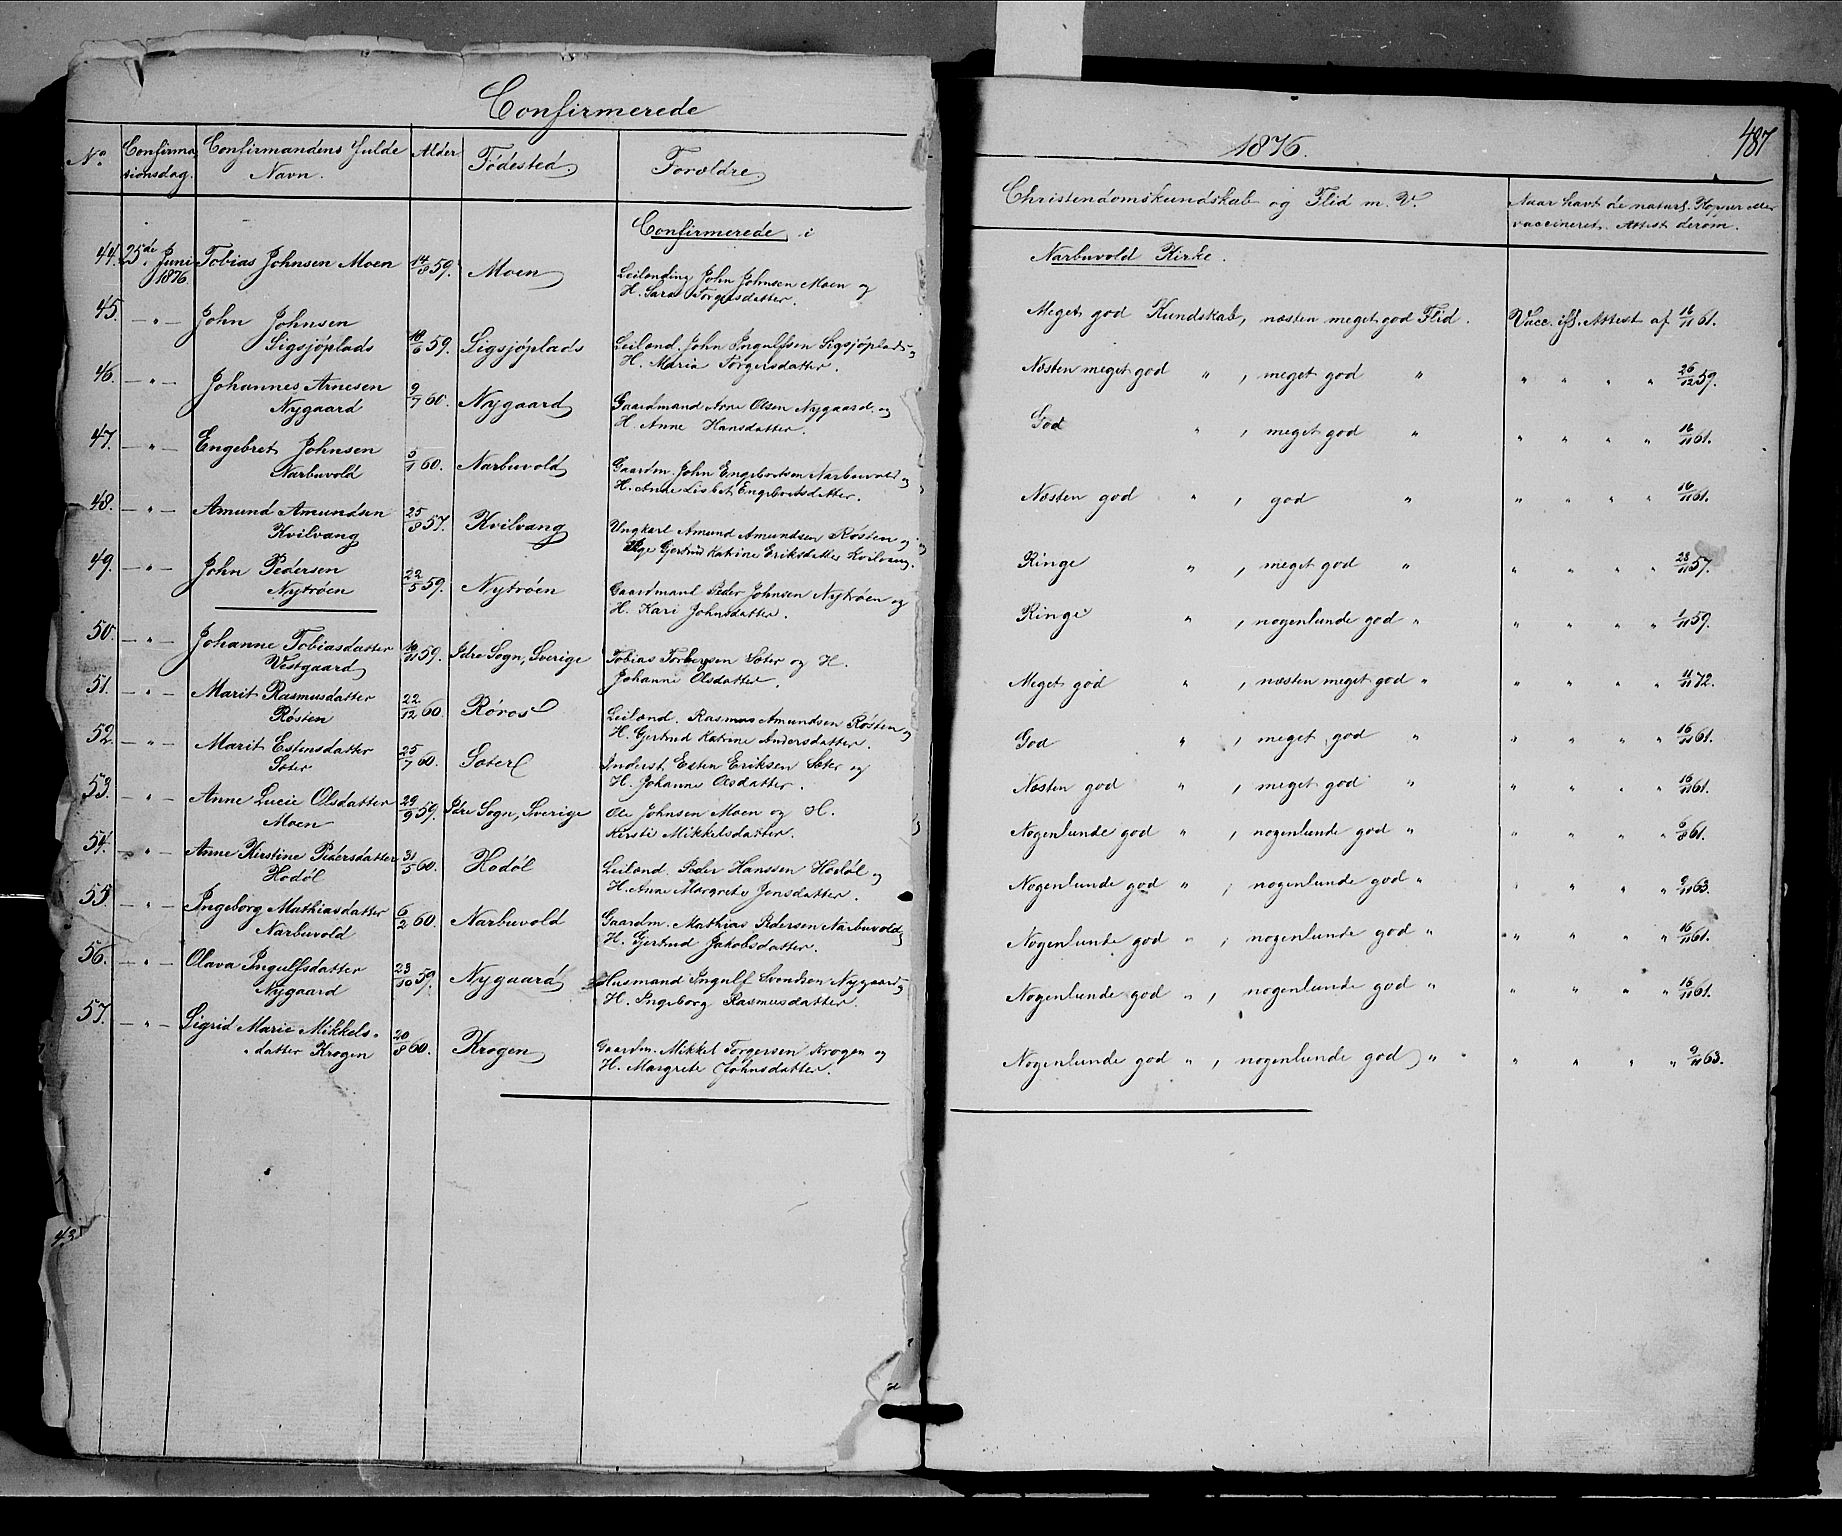 Confirmerede
No. Confirma Confirmandens fulde Alder Fødested. Forældre.
tionsdag. Navn.
Confirmerede i
44. 25de Juni Tobias Johnsen Moen 14/8 59. Moen Leilænding John Johnsen Moen og
1876 H. Sara Torgersdatter.
45. — " — John Johnsen
Sigsjöplads 59. Sigsjöplads Leilænd. John Ingulfsen Sigsjöplads og
H. Maria Torgersdatter.
46. — " — Johannes Arnesen
Nygaard 9/7 60. Nygaard Gaardmand Arne Olsen Nygaard og
H. Anne Hansdatter.
47. — " — Engebret Johnsen
Narbuvold 5/1 60. Narbuvold Gaardm. John Engebretsen Narbuvold og
H. Anne Lisbet Engebretsdatter.
48. — " — Amund Amundsen
Kvilvang 25/8 57. Kvilvang Ungkarl Amund Amundsen Røsten og
Pige Gjertrud Katrine Eriksdatter Kvilvang.
49. — " — John Pedersen
Nytrøen 22/5 59. Nytrøen Gaardmand Peder Johnsen Nytrøen og
H. Kari Johnsdatter.
50. — " — Johanne Tobiasdatter
Vestgaard 59. Idre Sogn, Sverige Tobias Torbergsen Sæter og H.
Johanne Olsdatter.
51. — " — Marit Rasmusdatter
Røsten 22/12 60. Røros Leilænd. Rasmus Amundsen Røsten og
H. Gjertrud Katrine Andersdatter.
52. — " — Marit Estensdatter
Sæter 25/7 60. Sæter Inderst Esten Eriksen Sæter og
H. Johanne Olsdatter.
53. — " — Anne Lucie Olsdatter
Moen 29/9 59. Idre Sogn, Sverige Ole Johnsen Moen og H.
Kirsti Mikkelsdatter.
54. — " — Anne Kirstine Pedersdatter
Hodøl 31/5 60. Hodøl Leilænd. Peder Hanssen Hodøl og
H. Anne Margrete Jonsdatter.
55. — " — Ingeborg Mathiasdatter
Narbuvold 6/2 60. Narbuvold Gaardm. Mathias Pedersen Narbuvold og
H. Gjertrud Jakobsdatter.
56. — " — Olava Ingulfsdatter
Nygaard 23/10 59. Nygaard Husmand Ingulf Svendsen Nygaard og
H. Ingeborg Rasmusdatter.
57. — " — Sigrid Marie Mikkels-
datter Krogen 20/8 60. Krogen Gaardm. Mikkel Torgersen Krogen og
H. Margrete Johnsdatter.
43
1876. 487
Christendomskundskab og Flid m. V. Naar havt de naturl. Kopper eller
vaccineret. Attest derom.
Narbuvold Kirke.
Meget god Kundskab, næsten meget god Flid. Vacc. ifl. Attest af 16/11 61.
Næsten meget god " , meget god " " " " " 26/12 59.
God " , meget god " " " " " 16/11 61.
Næsten god " , god " " " " " 16/11 61.
Ringe " , meget god " " " " " 28/11 57.
Ringe " , nogenlunde god " " " " " 1/11 59.
Meget god " , næsten meget god " " " " " 11/11 72.
God " , meget god " " " " " 16/11 61.
Næsten god " , meget god " " " " " 16/11 61.
Nogenlunde god " , nogenlunde god " " " " " 6/8 61.
Nogenlunde god " , nogenlunde god " " " " " 9/11 63.
Nogenlunde god " , nogenlunde god " " " " " 16/11 61.
Nogenlunde god " , nogenlunde god " " " " " 16/11 61.
Nogenlunde god " , nogenlunde god " " " " " 9/11 63.